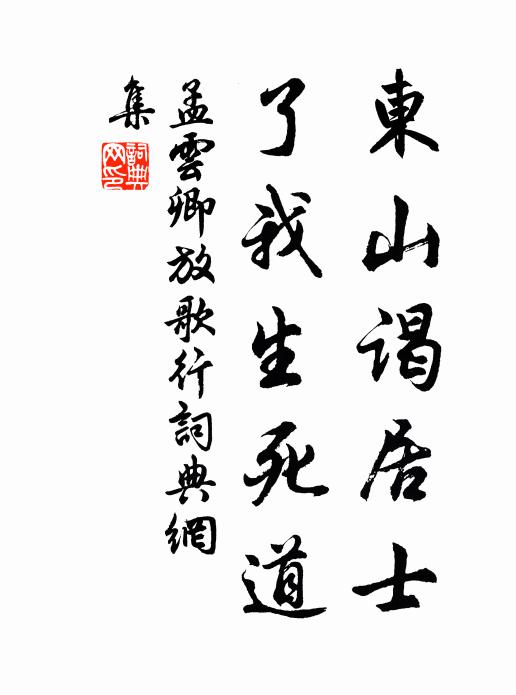 東山謁居士
了我生死道
孟雲卿放歌行詞典網
集
詞典
網印